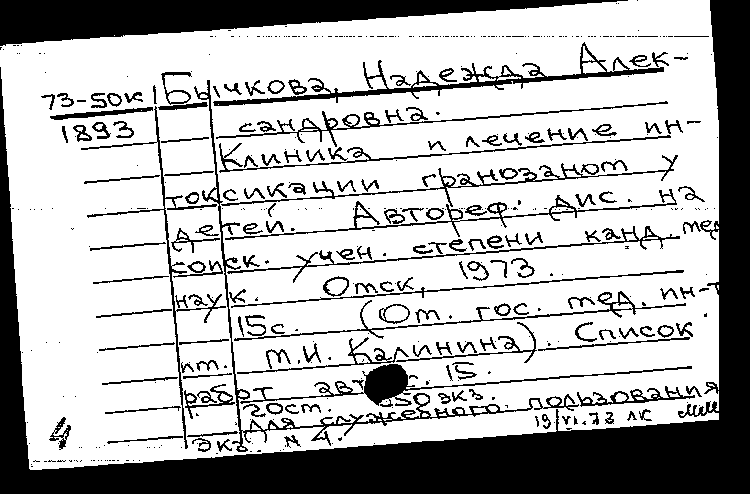 73-50к Бычкова, Надежда Алек-
1893 сандровна.
Клиника и лечение ин-
токсикации гранозаном у
детей. Автореф. дис. на
соиск. учен. степени канд. мед.
наук. Омск, 1973.
15с. (Ом. гос. мед. ин-т
им. М.И. Калинина). Список
работ авт. с. 15.
20ст. 350 экз.
Для служебного пользования
4 экз. N 4. 19/VI.73 ЛК